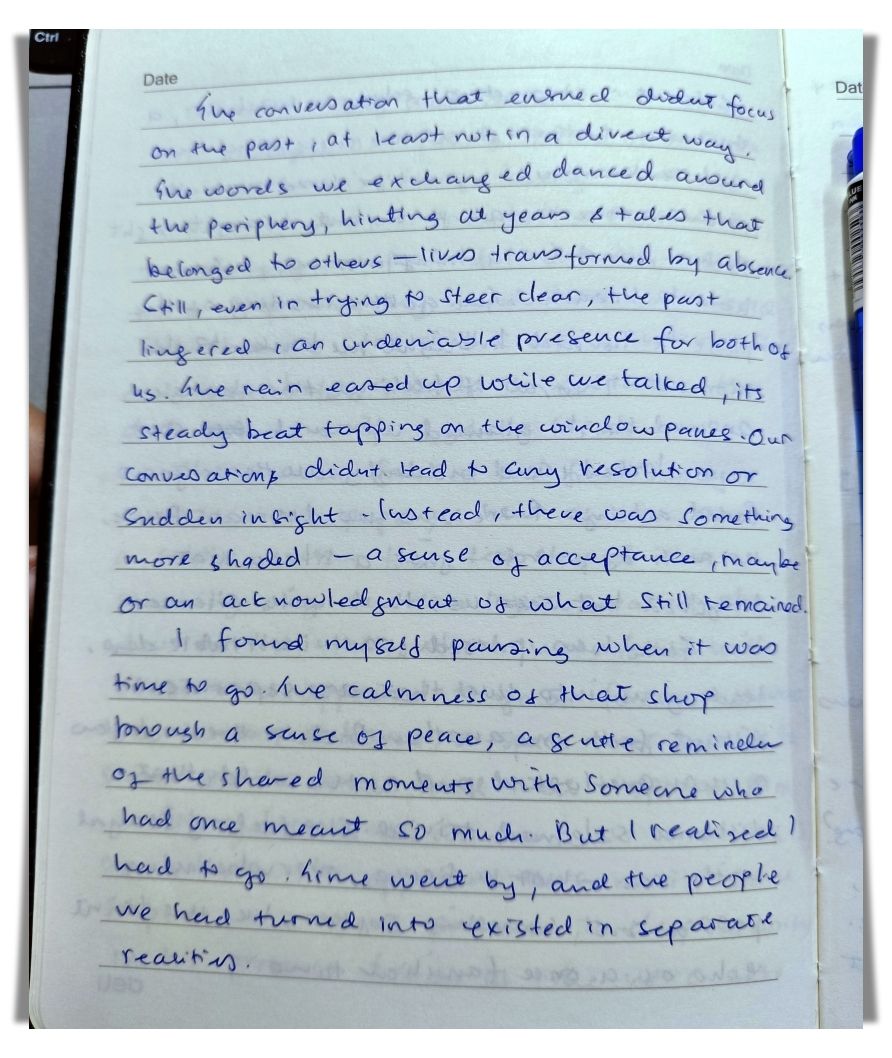 Ctrl
Date
Dat
The conversation that ensued didnt focus
on the past, at least not in a direct way.
The words we exchanged danced around
the periphery, hinting at years & tales that
belonged to others – lives transformed by absence.
Still, even in trying to steer clear, the past
lingered, an undeniable presence for both of
us. The rain eased up while we talked, its
steady beat tapping on the windowpanes. Our
conversations didnt lead to any resolution or
sudden insight. Instead, there was something
more shaded – a sense of acceptance, maybe
or an acknowledgment of what still remained.
I found myself pausing when it was
time to go. The calmness of that shop
brough a sense of peace, a gentle reminder
of the shared moments with someone who
had once meant so much. But I realized I
had to go. Time went by, and the people
we had turned into existed in separate
realities.
deli